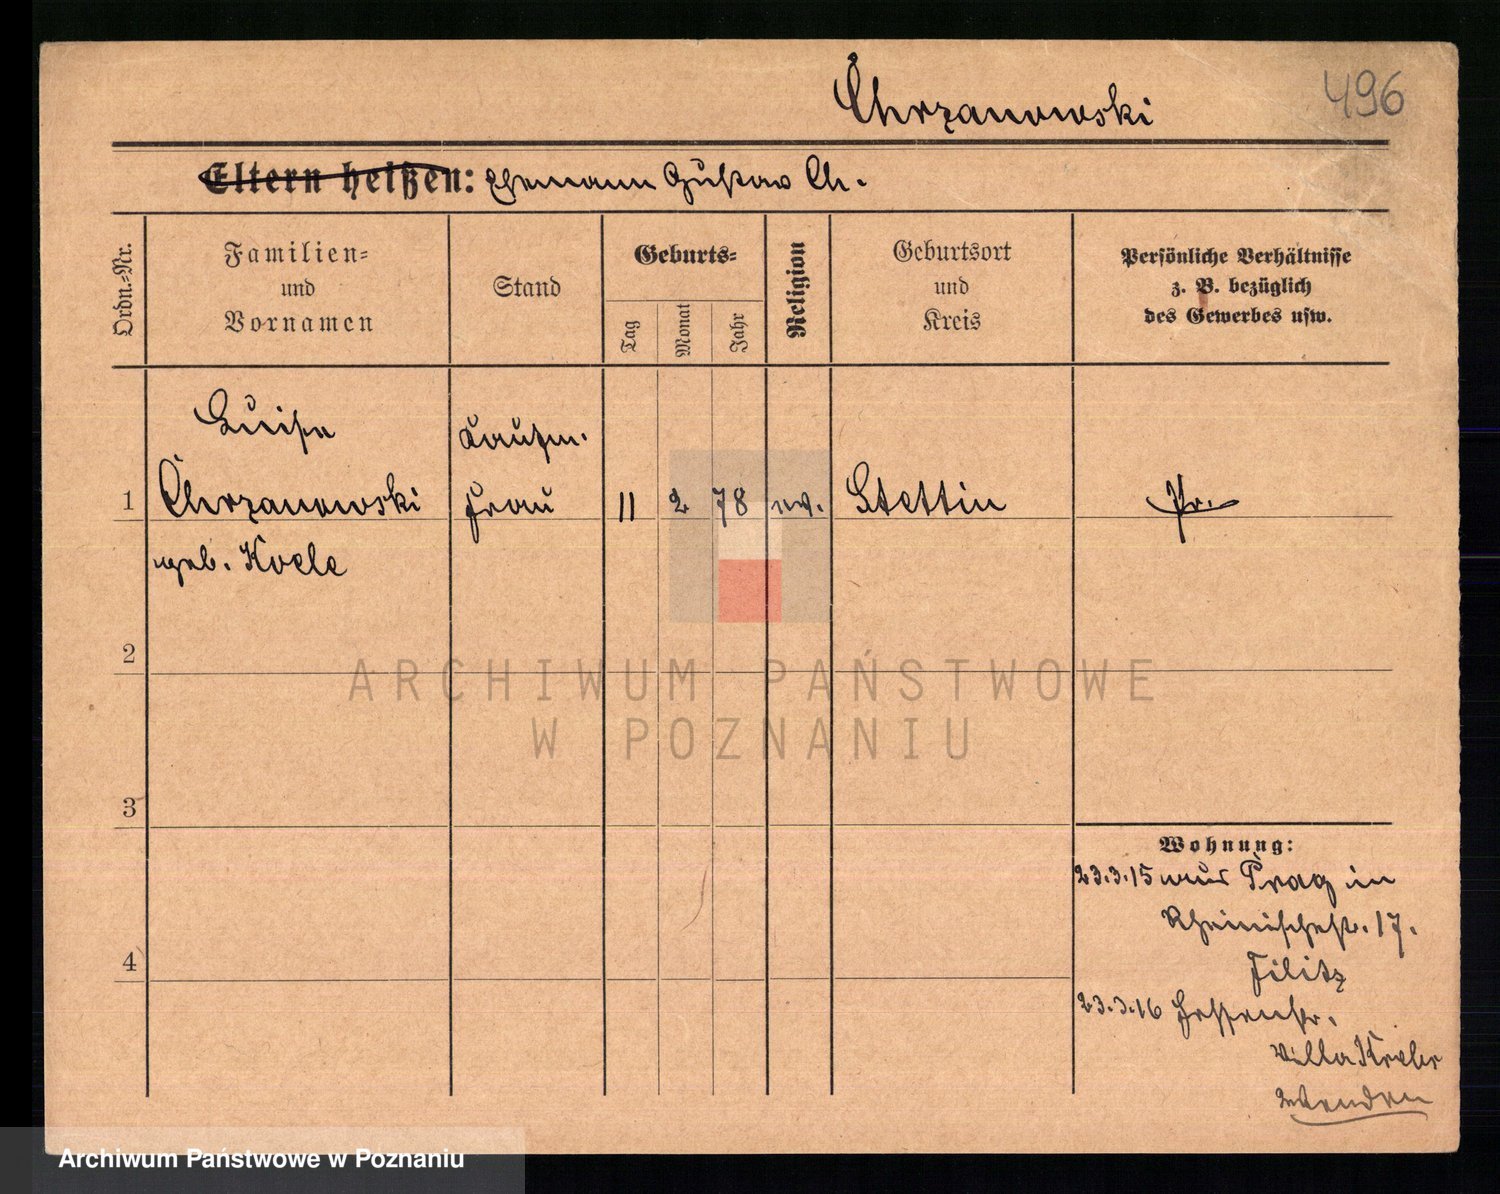 Chrzanowski
496
Eltern heißen: Ehemann Gustav Ch.
Ordn.-Nr.
Familien-
und
Vornamen
Stand
Geburts-
Tag
Monat
Jahr
Religion
Geburtsort
und
Kreis
Persönliche Verhältnisse
z. B. bezüglich
des Gewerbes usw.
Luise
Kaufm.
1 Chrzanowski Frau 11 2 78 ev. Stettin Pr.
geb. Koele
2
3
4
Wohnung:
23.3.15 aus Prag in
Rheinischestr. 17.
Filitz
23.3.16 Hessenstr.
Villa Krebs
Wenden
ARCHIWUM PAŃSTWOWE
W POZNANIU
Archiwum Państwowe w Poznaniu